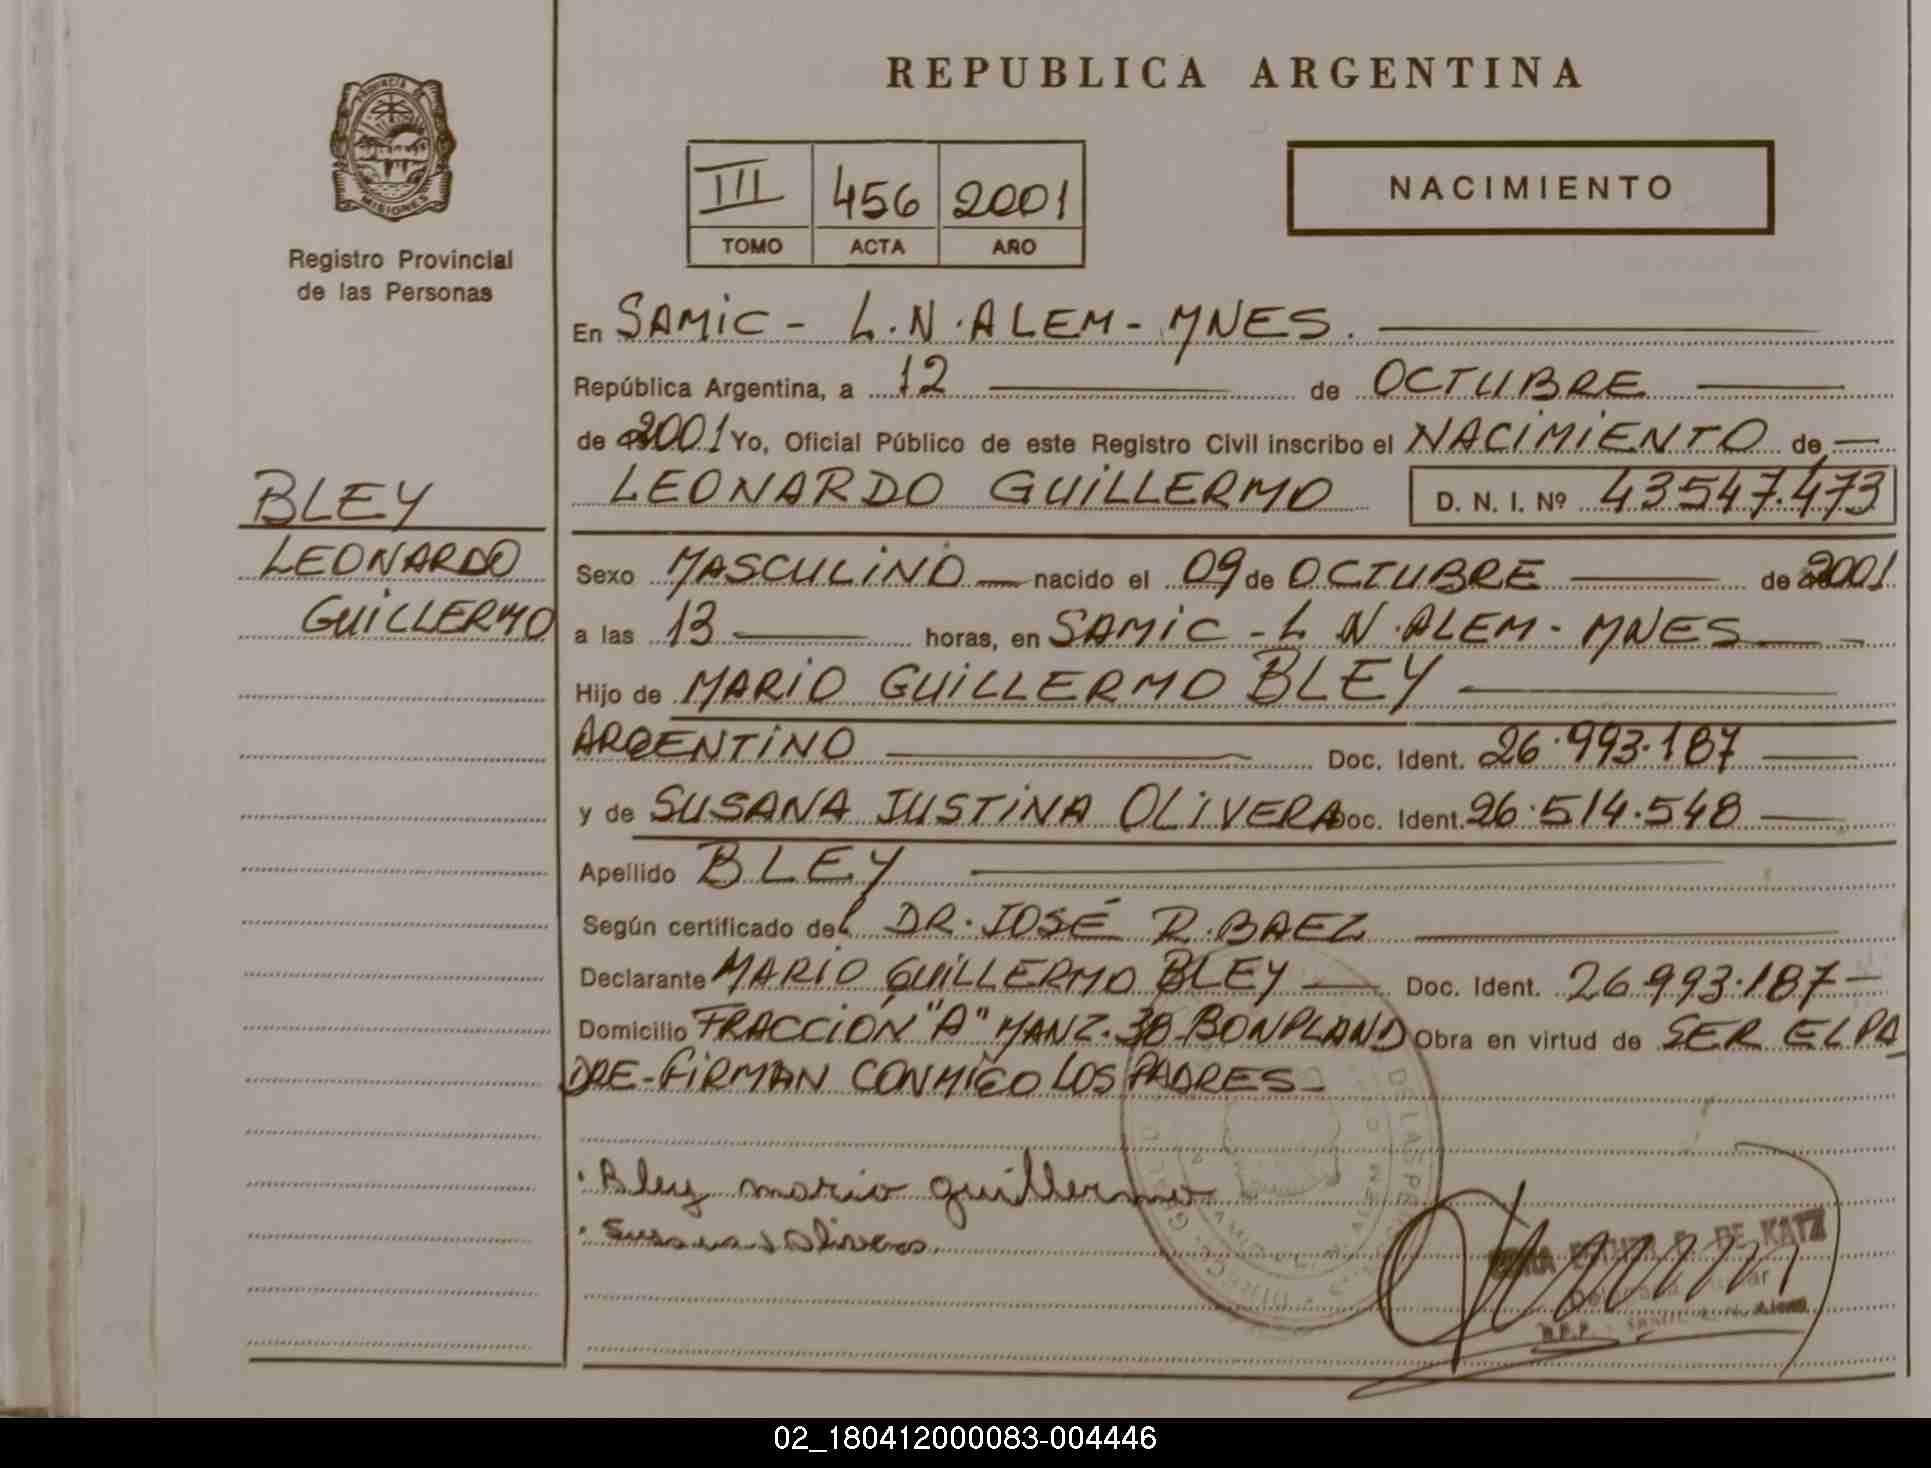 REPUBLICA ARGENTINA
PROVINCIA DE
MISIONES
Registro Provincial
de las Personas
III 456 2001
TOMO ACTA AÑO
NACIMIENTO
En SAMIC - L.N. ALEM - MNES.
República Argentina, a 12 de OCTUBRE
de 2001 Yo, Oficial Público de este Registro Civil inscribo el NACIMIENTO de
LEONARDO GUILLERMO D. N. I. Nº 43547.473
BLEY
LEONARDO
GUILLERMO
Sexo MASCULINO nacido el 09 de OCTUBRE de 2001
a las 13 horas, en SAMIC - L N. ALEM - MNES
Hijo de MARIO GUILLERMO BLEY
ARGENTINO Doc. Ident. 26.993.187
y de SUSANA JUSTINA OLIVERA Doc. Ident. 26.514.548
Apellido BLEY
Según certificado del DR. JOSÉ R. BAEZ
Declarante MARIO GUILLERMO BLEY Doc. Ident. 26.993.187
Domicilio FRACCIÓN "A" MANZ. 38 BONPLAND Obra en virtud de SER EL PA
DRE - FIRMAN CONMIGO LOS PADRES -
Bley mario guillermo
Susana J Olivera
DE LAS PE
DE KATZ
02_180412000083-004446